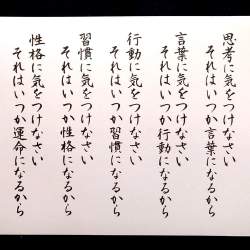 思考に気をつけなさい
それはいつか言葉になるから
言葉に気をつけなさい
それはいつか行動になるから
行動に気をつけなさい
それはいつか習慣になるから
習慣に気をつけなさい
それはいつか性格になるから
性格に気をつけなさい
それはいつか運命になるから